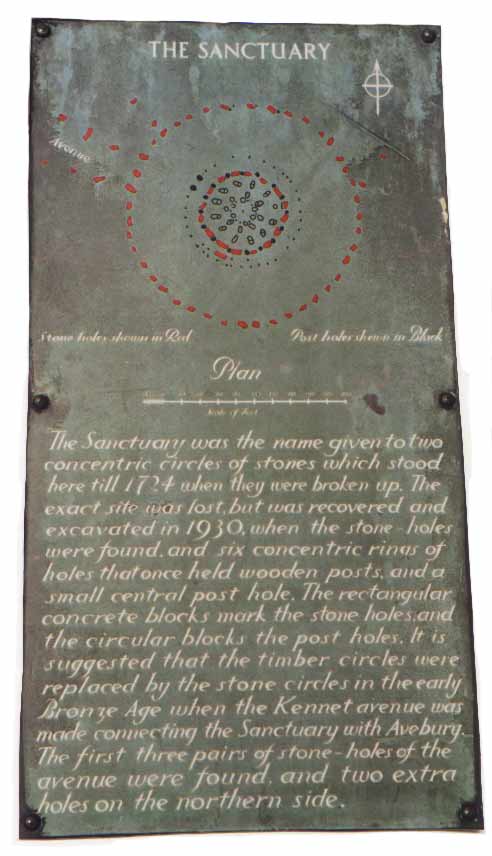 THE SANCTUARY
Avenue
Stone holes shown in Red
Post holes shewn in Black
Plan
Scale of Feet
The Sanctuary was the name given to two
concentric circles of stones which stood
here till 1724 when they were broken up. The
exact site was lost, but was recovered and
excavated in 1930, when the stone-holes
were found, and six concentric rings of
holes that once held wooden posts, and a
small central post hole. The rectangular
concrete blocks mark the stone holes, and
the circular blocks the post holes. It is
suggested that the timber circles were
replaced by the stone circles in the early
Bronze Age when the Kennet avenue was
made connecting the Sanctuary with Avebury.
The first three pairs of stone-holes of the
avenue were found, and two extra
holes on the northern side.